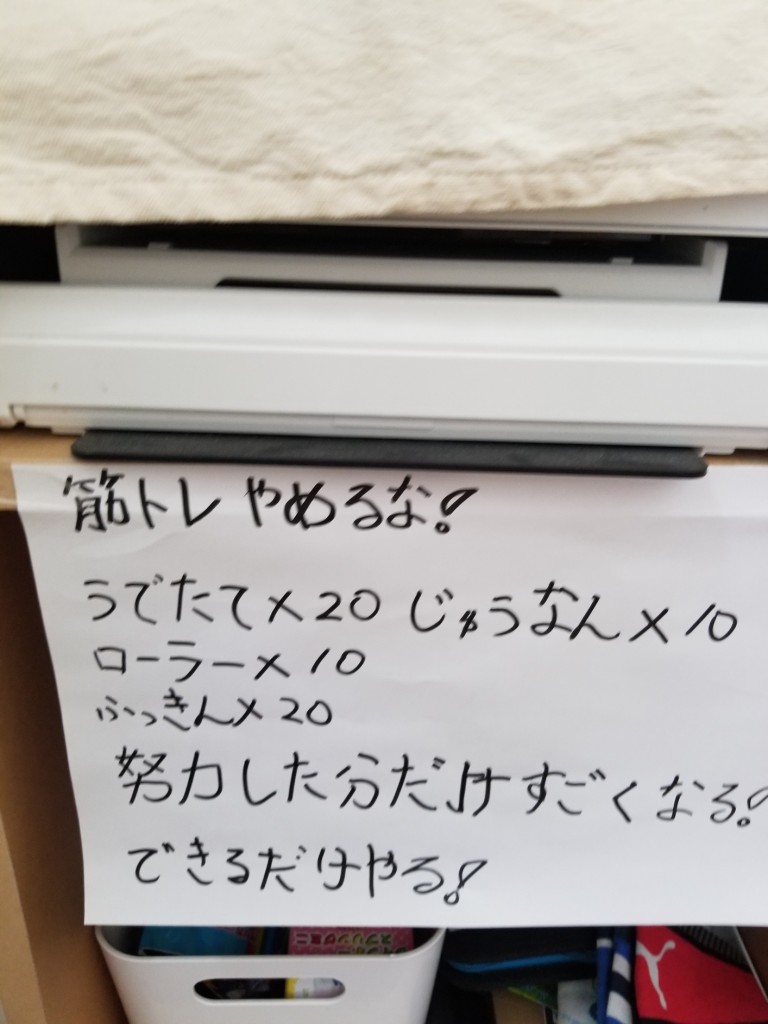 筋トレやめるな!
うでたて×20 じゅうなん×10
ローラー×10
ふっきん×20
努力した分だけすごくなる!
できるだけやる!
スプリングミニ